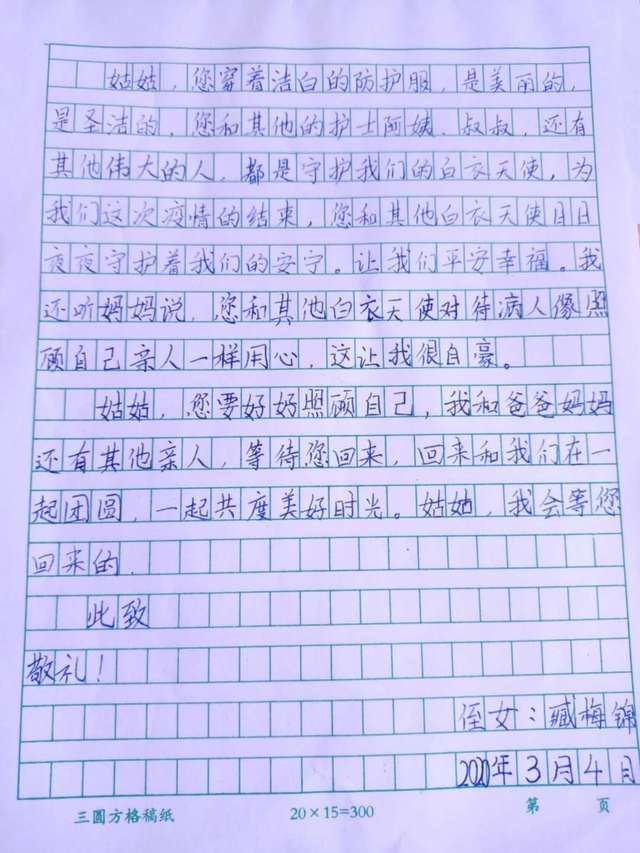 姑姑，您穿着洁白的防护服，是美丽的，
是圣洁的，您和其他的护士阿姨、叔叔，还有
其他伟大的人，都是守护我们的白衣天使，为
我们这次疫情的结束，您和其他白衣天使日日
夜夜守护着我们的安宁。让我们平安幸福。我
还听妈妈说，您和其他白衣天使对待病人像照
顾自己亲人一样用心，这让我很自豪。
姑姑，您要好好照顾自己，我和爸爸妈妈
还有其他亲人，等待您回来，回来和我们在一
起团圆，一起共度美好时光。姑姑，我会等您
回来的.
此致
敬礼！
侄女：臧梅锦
2020年3月4日
三圆方格稿纸 20×15=300 第 页